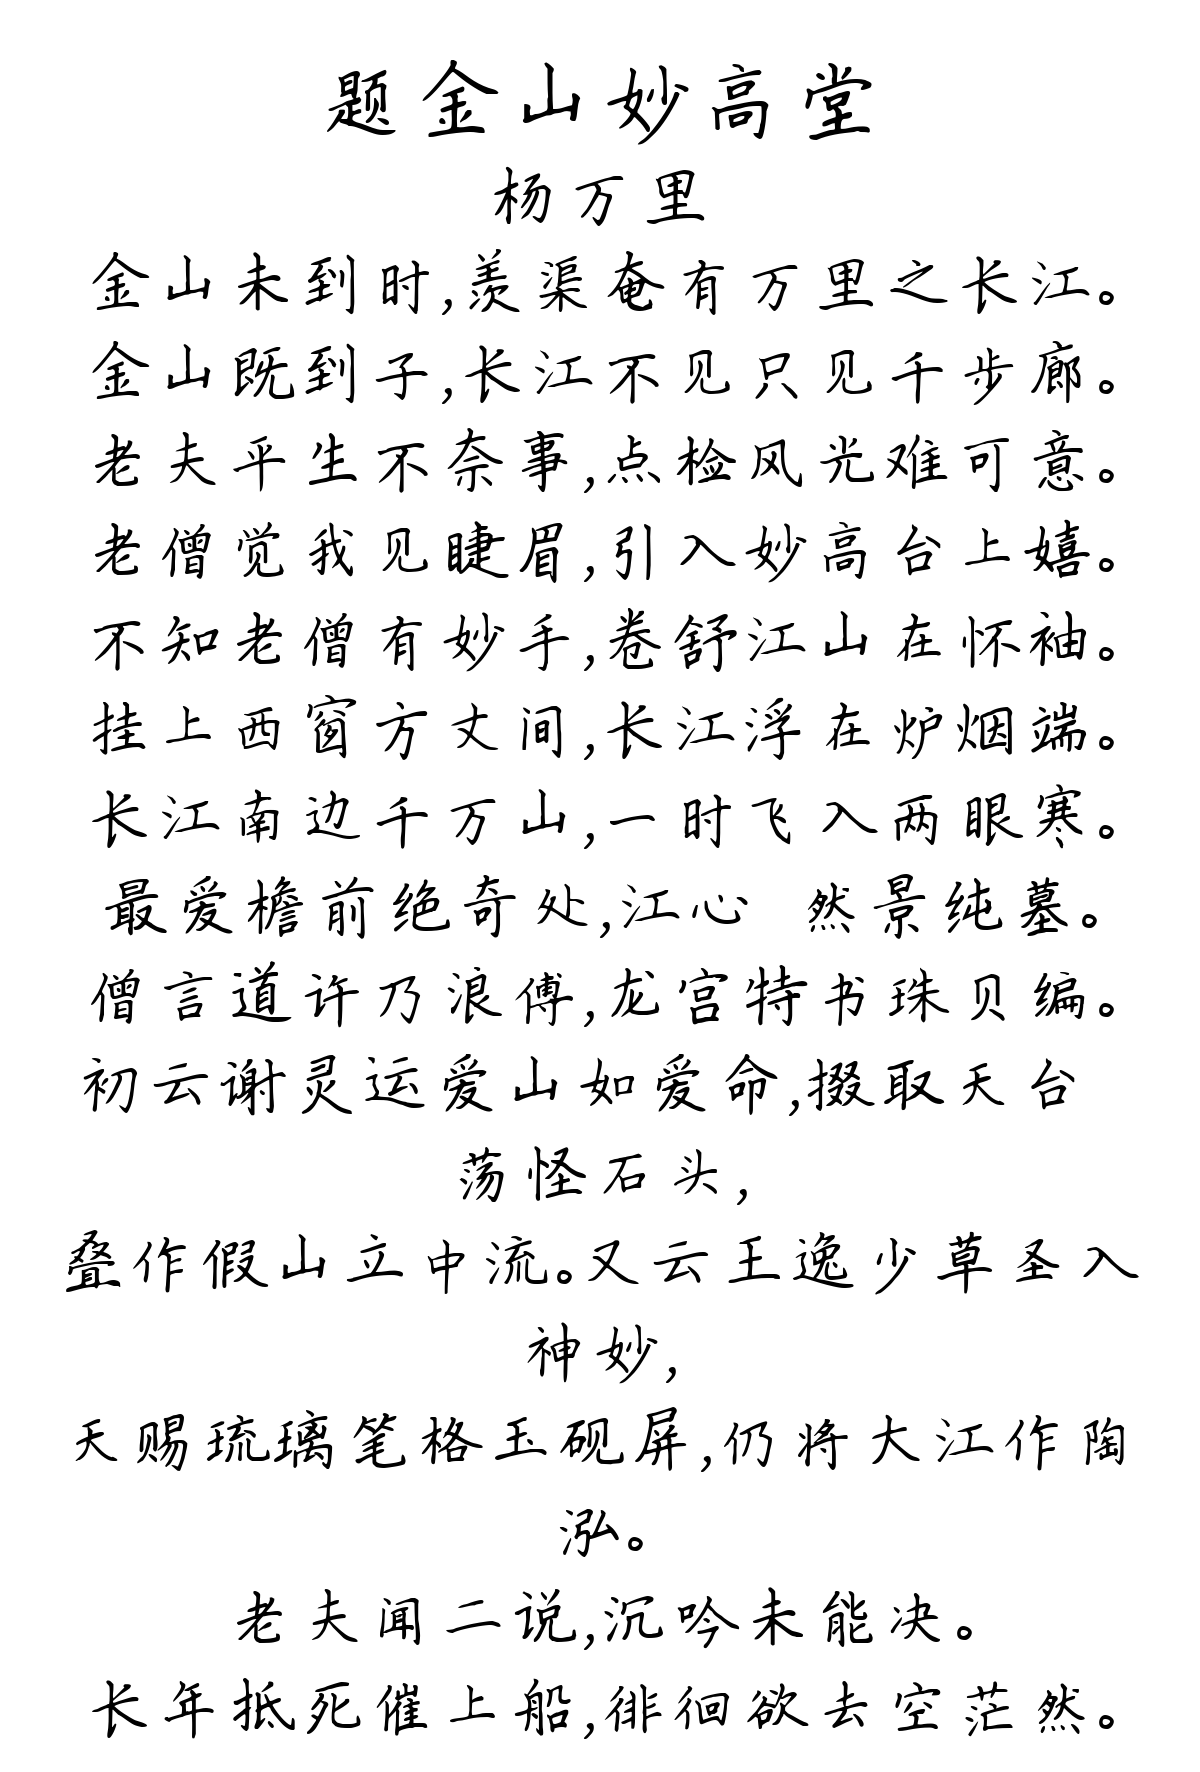 题金山妙高堂
杨万里
金山未到时,羡渠奄有万里之长江。
金山既到子,长江不见只见千步廊。
老夫平生不奈事,点检风光难可意。
老僧觉我见睫眉,引入妙高台上嬉。
不知老僧有妙手,卷舒江山在怀袖。
挂上西窗方丈间,长江浮在炉烟端。
长江南边千万山,一时飞入两眼寒。
最爱檐前绝奇处,江心 然景纯墓。
僧言道许乃浪傅,龙宫特书珠贝编。
初云谢灵运爱山如爱命,掇取天台
荡怪石头,
叠作假山立中流。又云王逸少草圣入
神妙,
天赐琉璃笔格玉砚屏,仍将大江作陶
泓。
老夫闻二说,沉吟未能决。
长年抵死催上船,徘徊欲去空茫然。